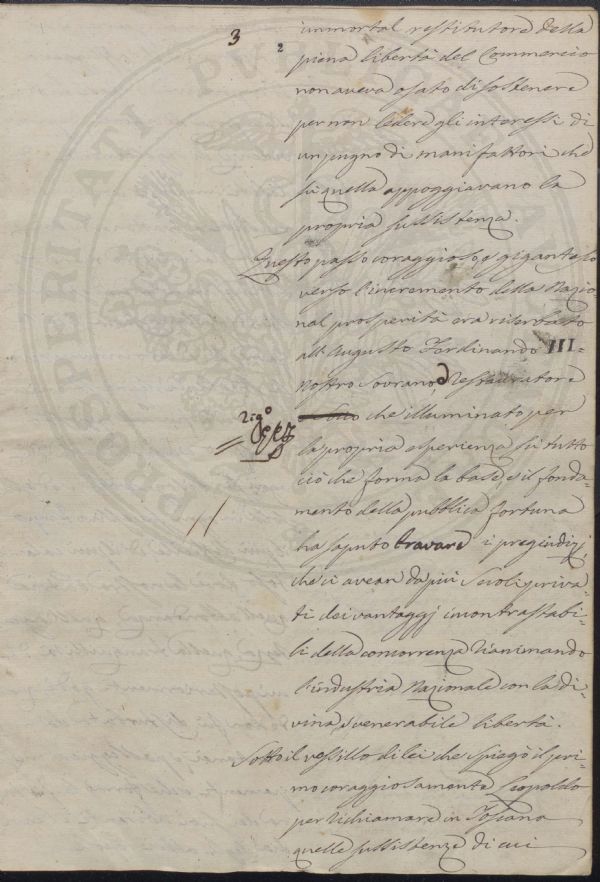 3
2
immortal restitutore della
piena libertà del Commercio
non aveva osato di sostenere
per non ledere gli interessi di
un pugno di manifattori che
su quella appoggiavano la
propria sussistenza.
Questo passo coraggioso, e gigantesco
verso l'incremento della Nazio-
nal prosperità era riserbato
all'Augusto Ferdinando III=
Nostro Sovrano, e Restauratore
che illuminato per
la propria esperienza su tutto
ciò che forma la base, e il fonda-
mento della pubblica fortuna
ha saputo i pregiudizj,
che ci avean da più secoli priva-
ti dei vantaggj incontrastabi-
li della concorrenza rianimando
l'industria Nazionale con la di-
vina, e venerabile libertà.
Sotto il vessillo di lei che spiegò il pri-
mo coraggiosamente Leopoldo
per richiamare in Toscana
quelle sussistenze di cui
PROSPERITATI PVBLICAE AV